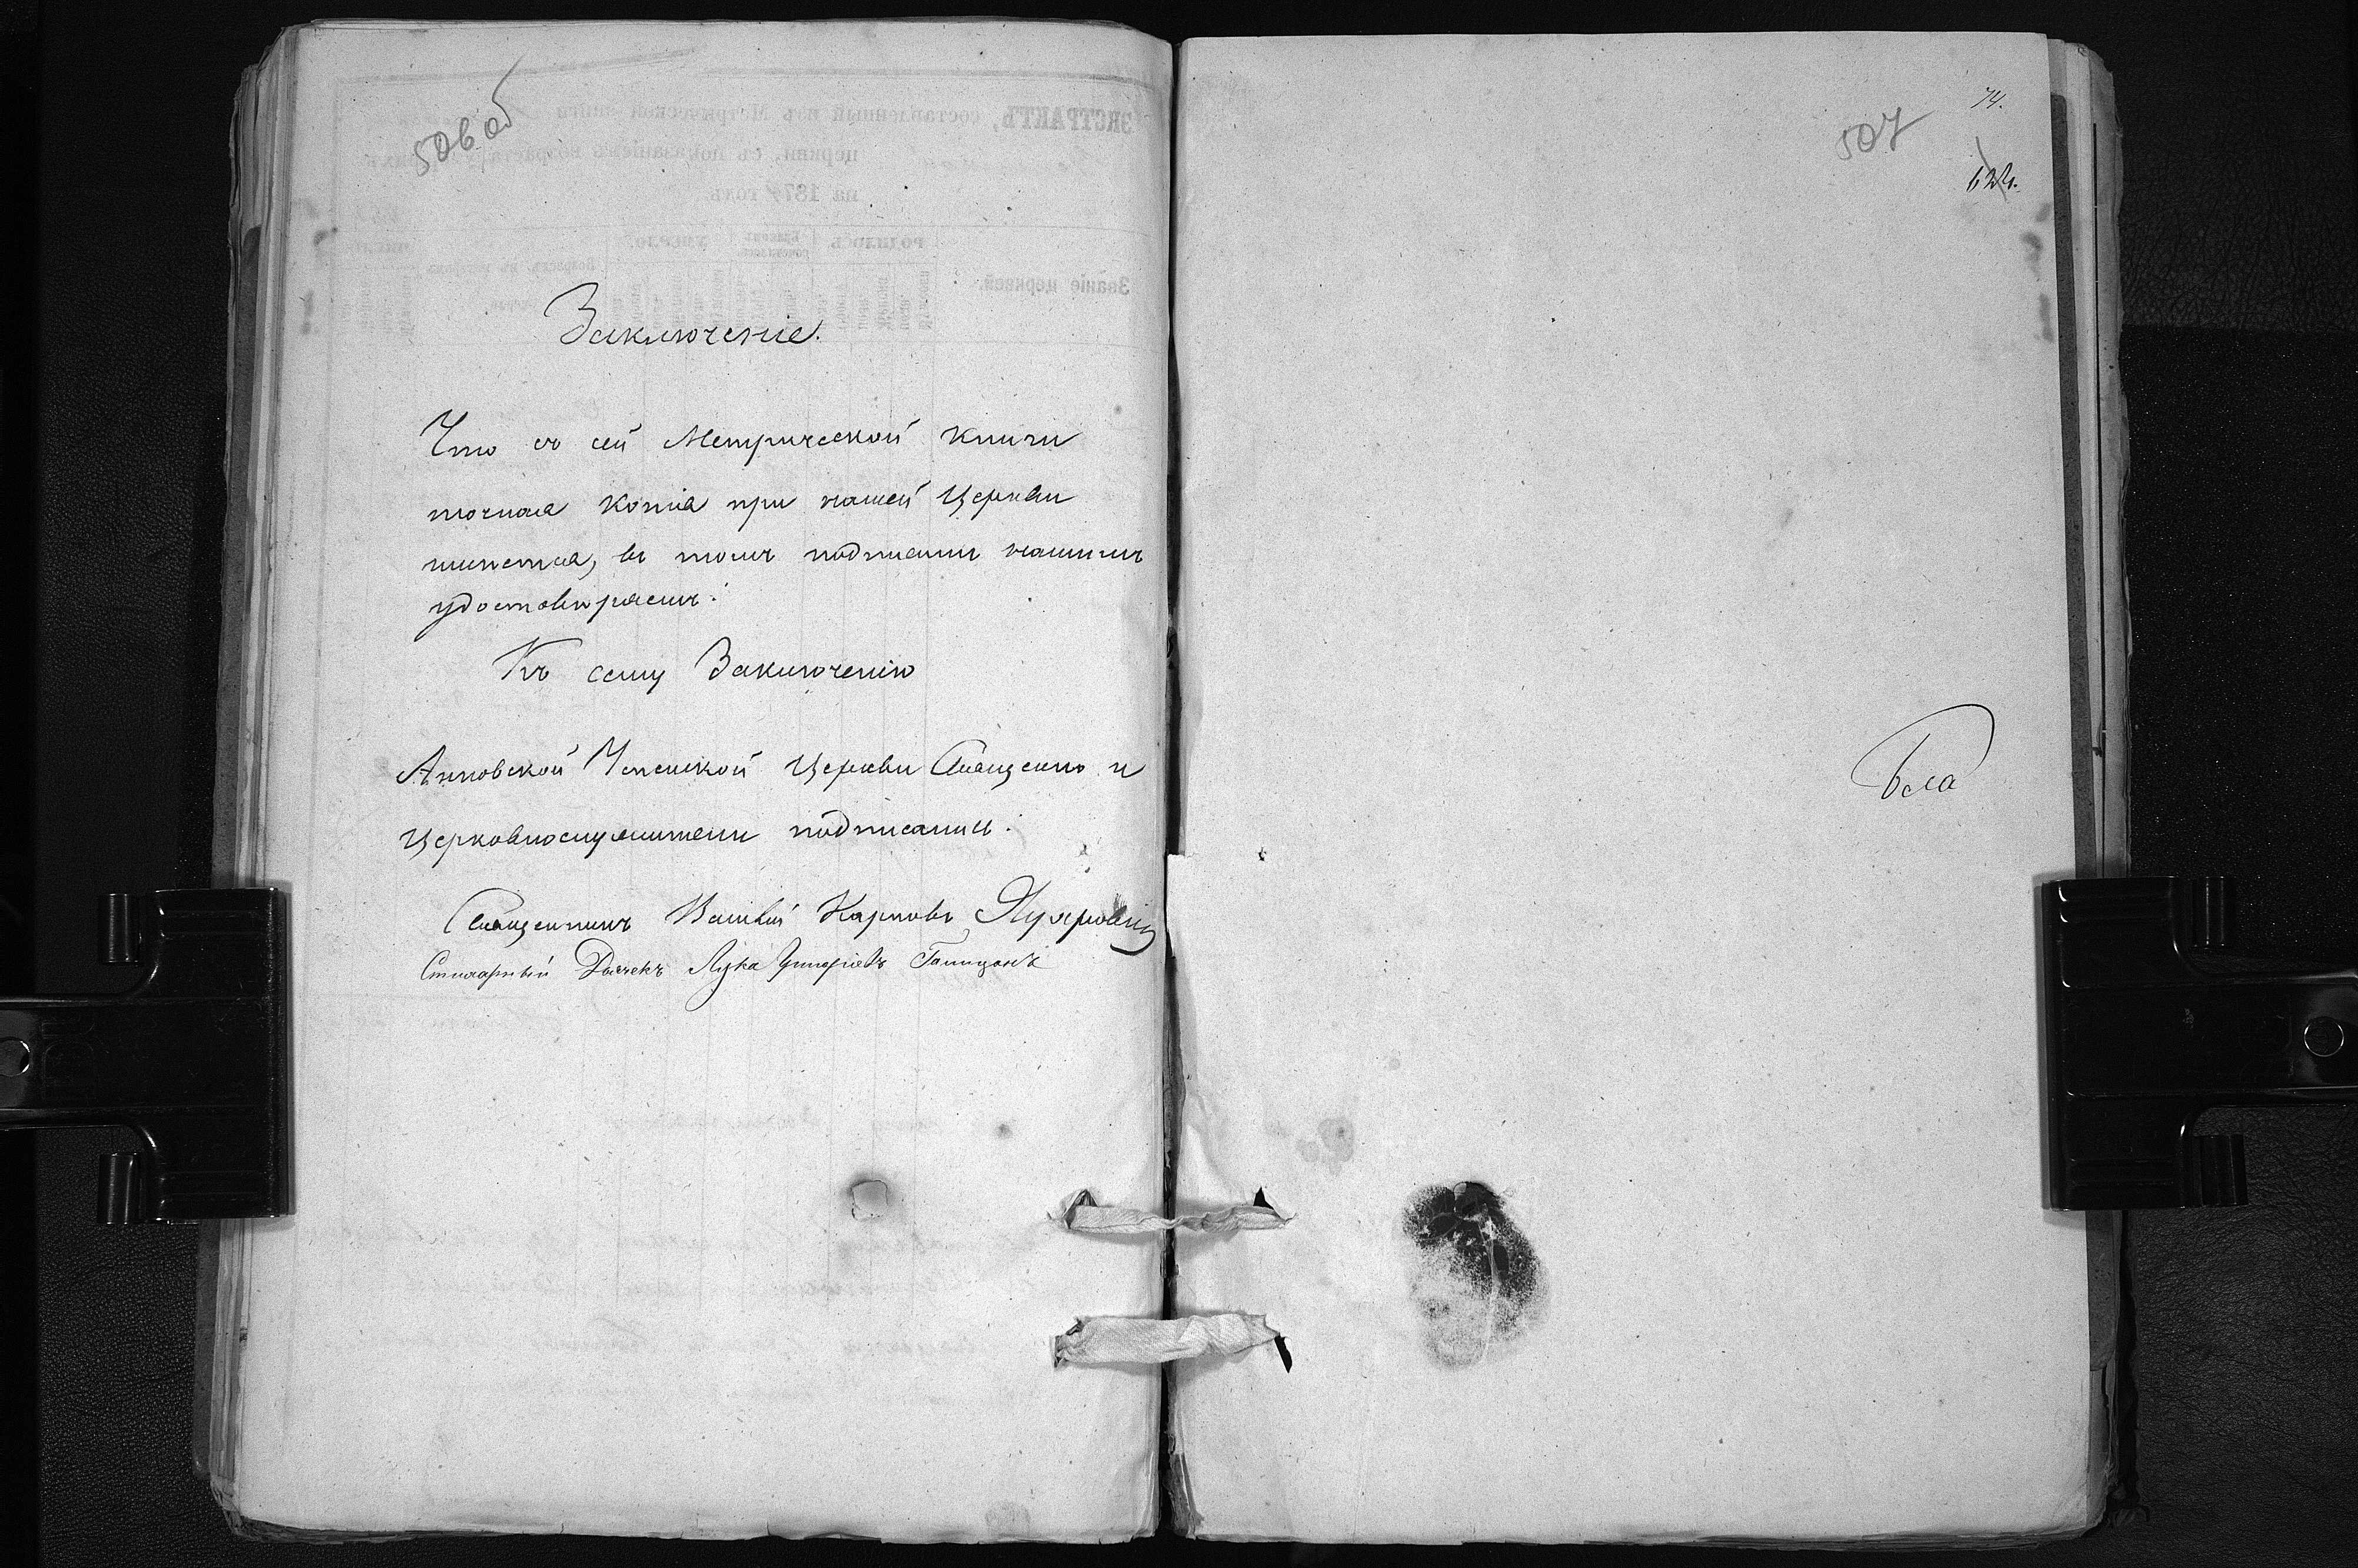 506 об
Заключеніе.
Что съ сей Метрической книги
точная копія при нашей Церкви
имѣется, въ томъ подписомъ нашимъ
удостовѣряемъ:
Къ сему Заключенію
Анновской Успенской Церкви Священно и
Церковнослужители подписались:
Священникъ Василій Карповъ
Стихарный Дьячекъ Лука Григоріевъ
74.
507
624.